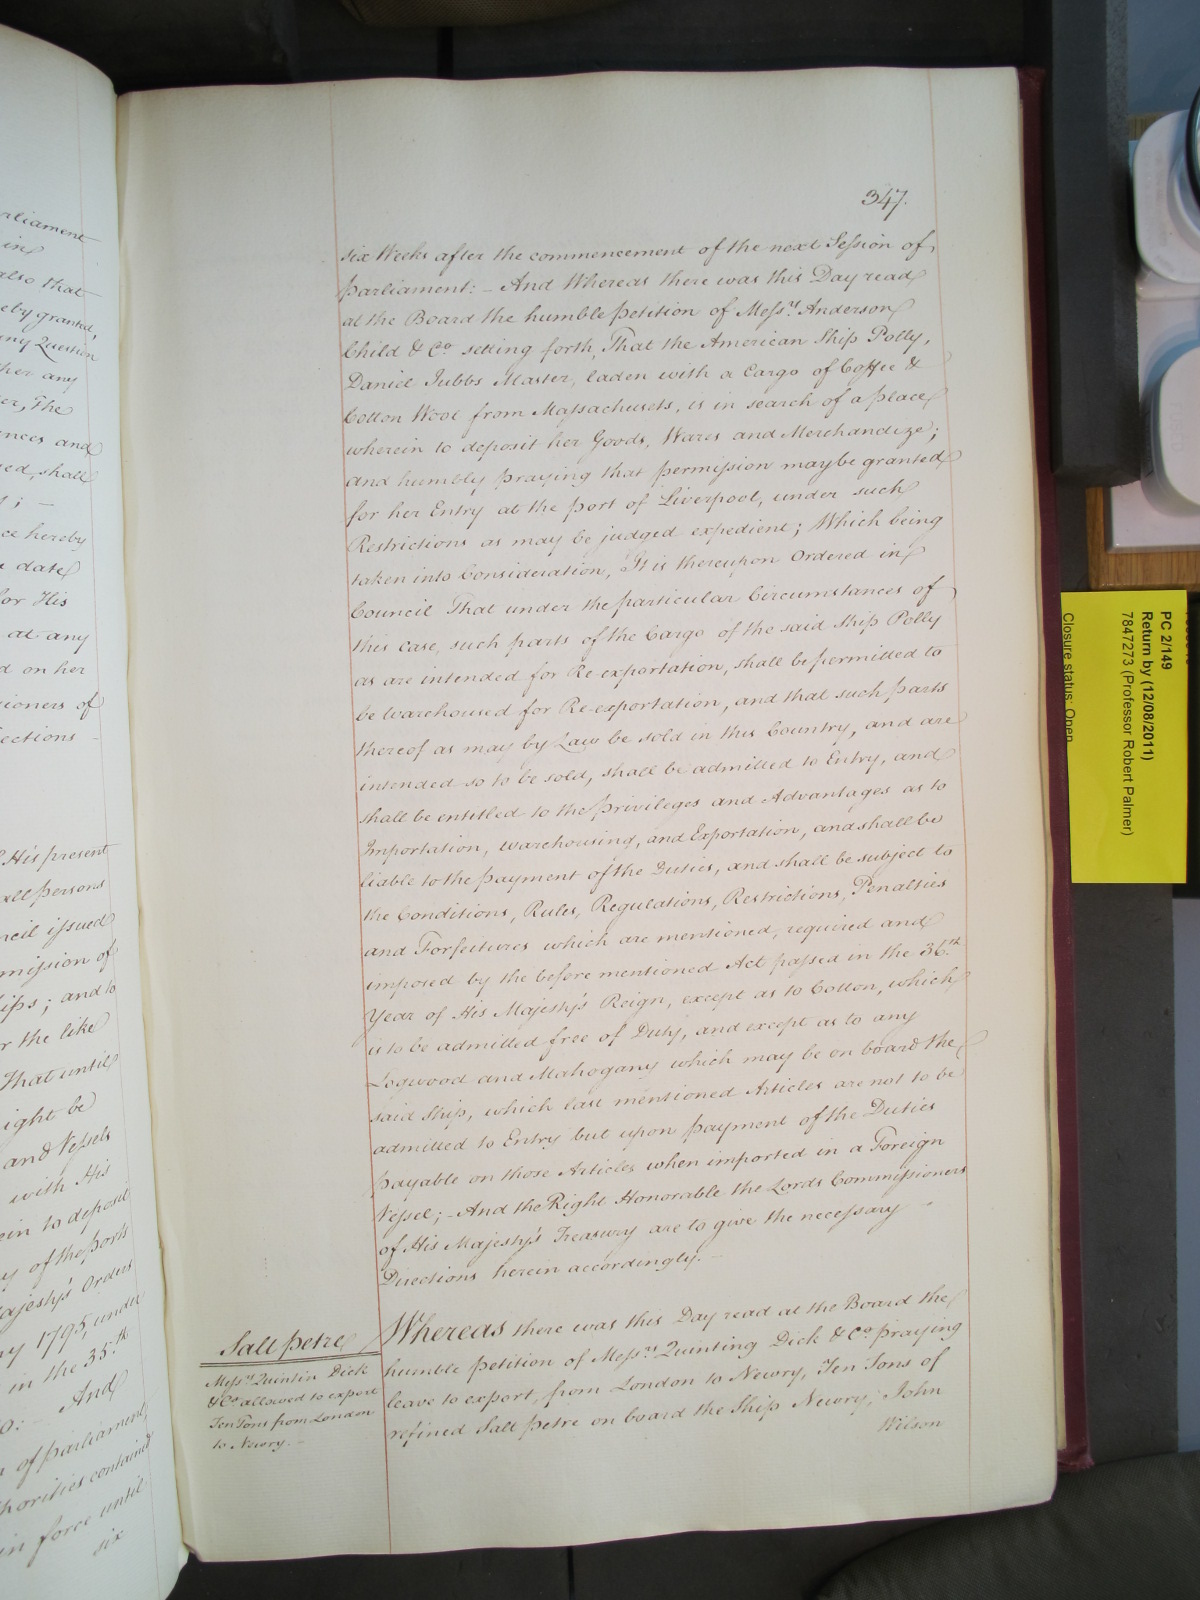 rliament
in
also that
eby granted,
ny Question
her any
er, The
nces and
ed, shall
ce hereby
date
for His
at any
d on her
ioners of
ections
His present
all persons
ncil issued
mission of
ips; and to
r the like
That until
ight be
and Vessels
with His
ein to deposit
y of the ports
ajesty's Orders
ry 1795, under
in the 35.th
And
of parliament,
horities contained
in force until
six
347.
six Weeks after the commencement of the next Session of
parliament: - And Whereas there was this Day read
at the Board the humble petition of Mess.rs Anderson
Child & Co. setting forth, That the American Ship Polly,
Daniel Jubbs Master, laden with a Cargo of Coffee &
Cotton Wool from Massachusets, is in search of a place
wherein to deposit her Goods, Wares and Merchandize;
and humbly praying that permission may be granted
for her Entry at the port of Liverpool, under such
Restrictions as may be judged expedient; Which being
taken into Consideration, It is thereupon Ordered in
Council That under the particular Circumstances of
this case, such parts of the Cargo of the said Ship Polly
as are intended for Re-exportation, shall be permitted to
be Warehoused for Re-exportation, and that such parts
thereof as may by Law be sold in this Country, and are
intended so to be sold, shall be admitted to Entry, and
shall be entitled to the privileges and Advantages as to
Importation, warehousing, and Exportation, and shall be
liable to the payment of the Duties, and shall be subject to
the Conditions, Rules, Regulations, Restrictions, Penalties
and Forfeitures which are mentioned, required and
imposed by the before mentioned Act passed in the 36.th
Year of His Majesty's Reign, except as to Cotton, which
is to be admitted free of Duty, and except as to any
Logwood and Mahogany which may be on board the
said Ship, which last mentioned Articles are not to be
admitted to Entry but upon payment of the Duties
payable on those Articles when imported in a Foreign
Vessel; - And the Right Honorable the Lords Commissioners
of His Majesty's Treasury are to give the necessary
Directions herein accordingly. -
Salt petre
Mess.rs Quintin Dick
& Co. allowed to export
Ten Tons from London
to Newry. -
Whereas there was this Day read at the Board the
humble petition of Mess.rs Quinting Dick & Co. praying
leave to export, from London to Newry, Ten Tons of
refined Salt petre on board the Ship Newry, John
Wilson
PC 2/149
Return by (12/08/2011)
7847273 (Professor Robert Palmer)
Closure status: Open